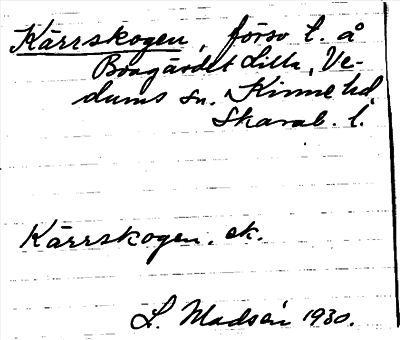 Kärrskogen, försv t. å
Boagärdet Lilla, Ve-
dums sn. Kinne hd
Skarab. l.
Kärrskogen. ek.
L. Madsén 1930.